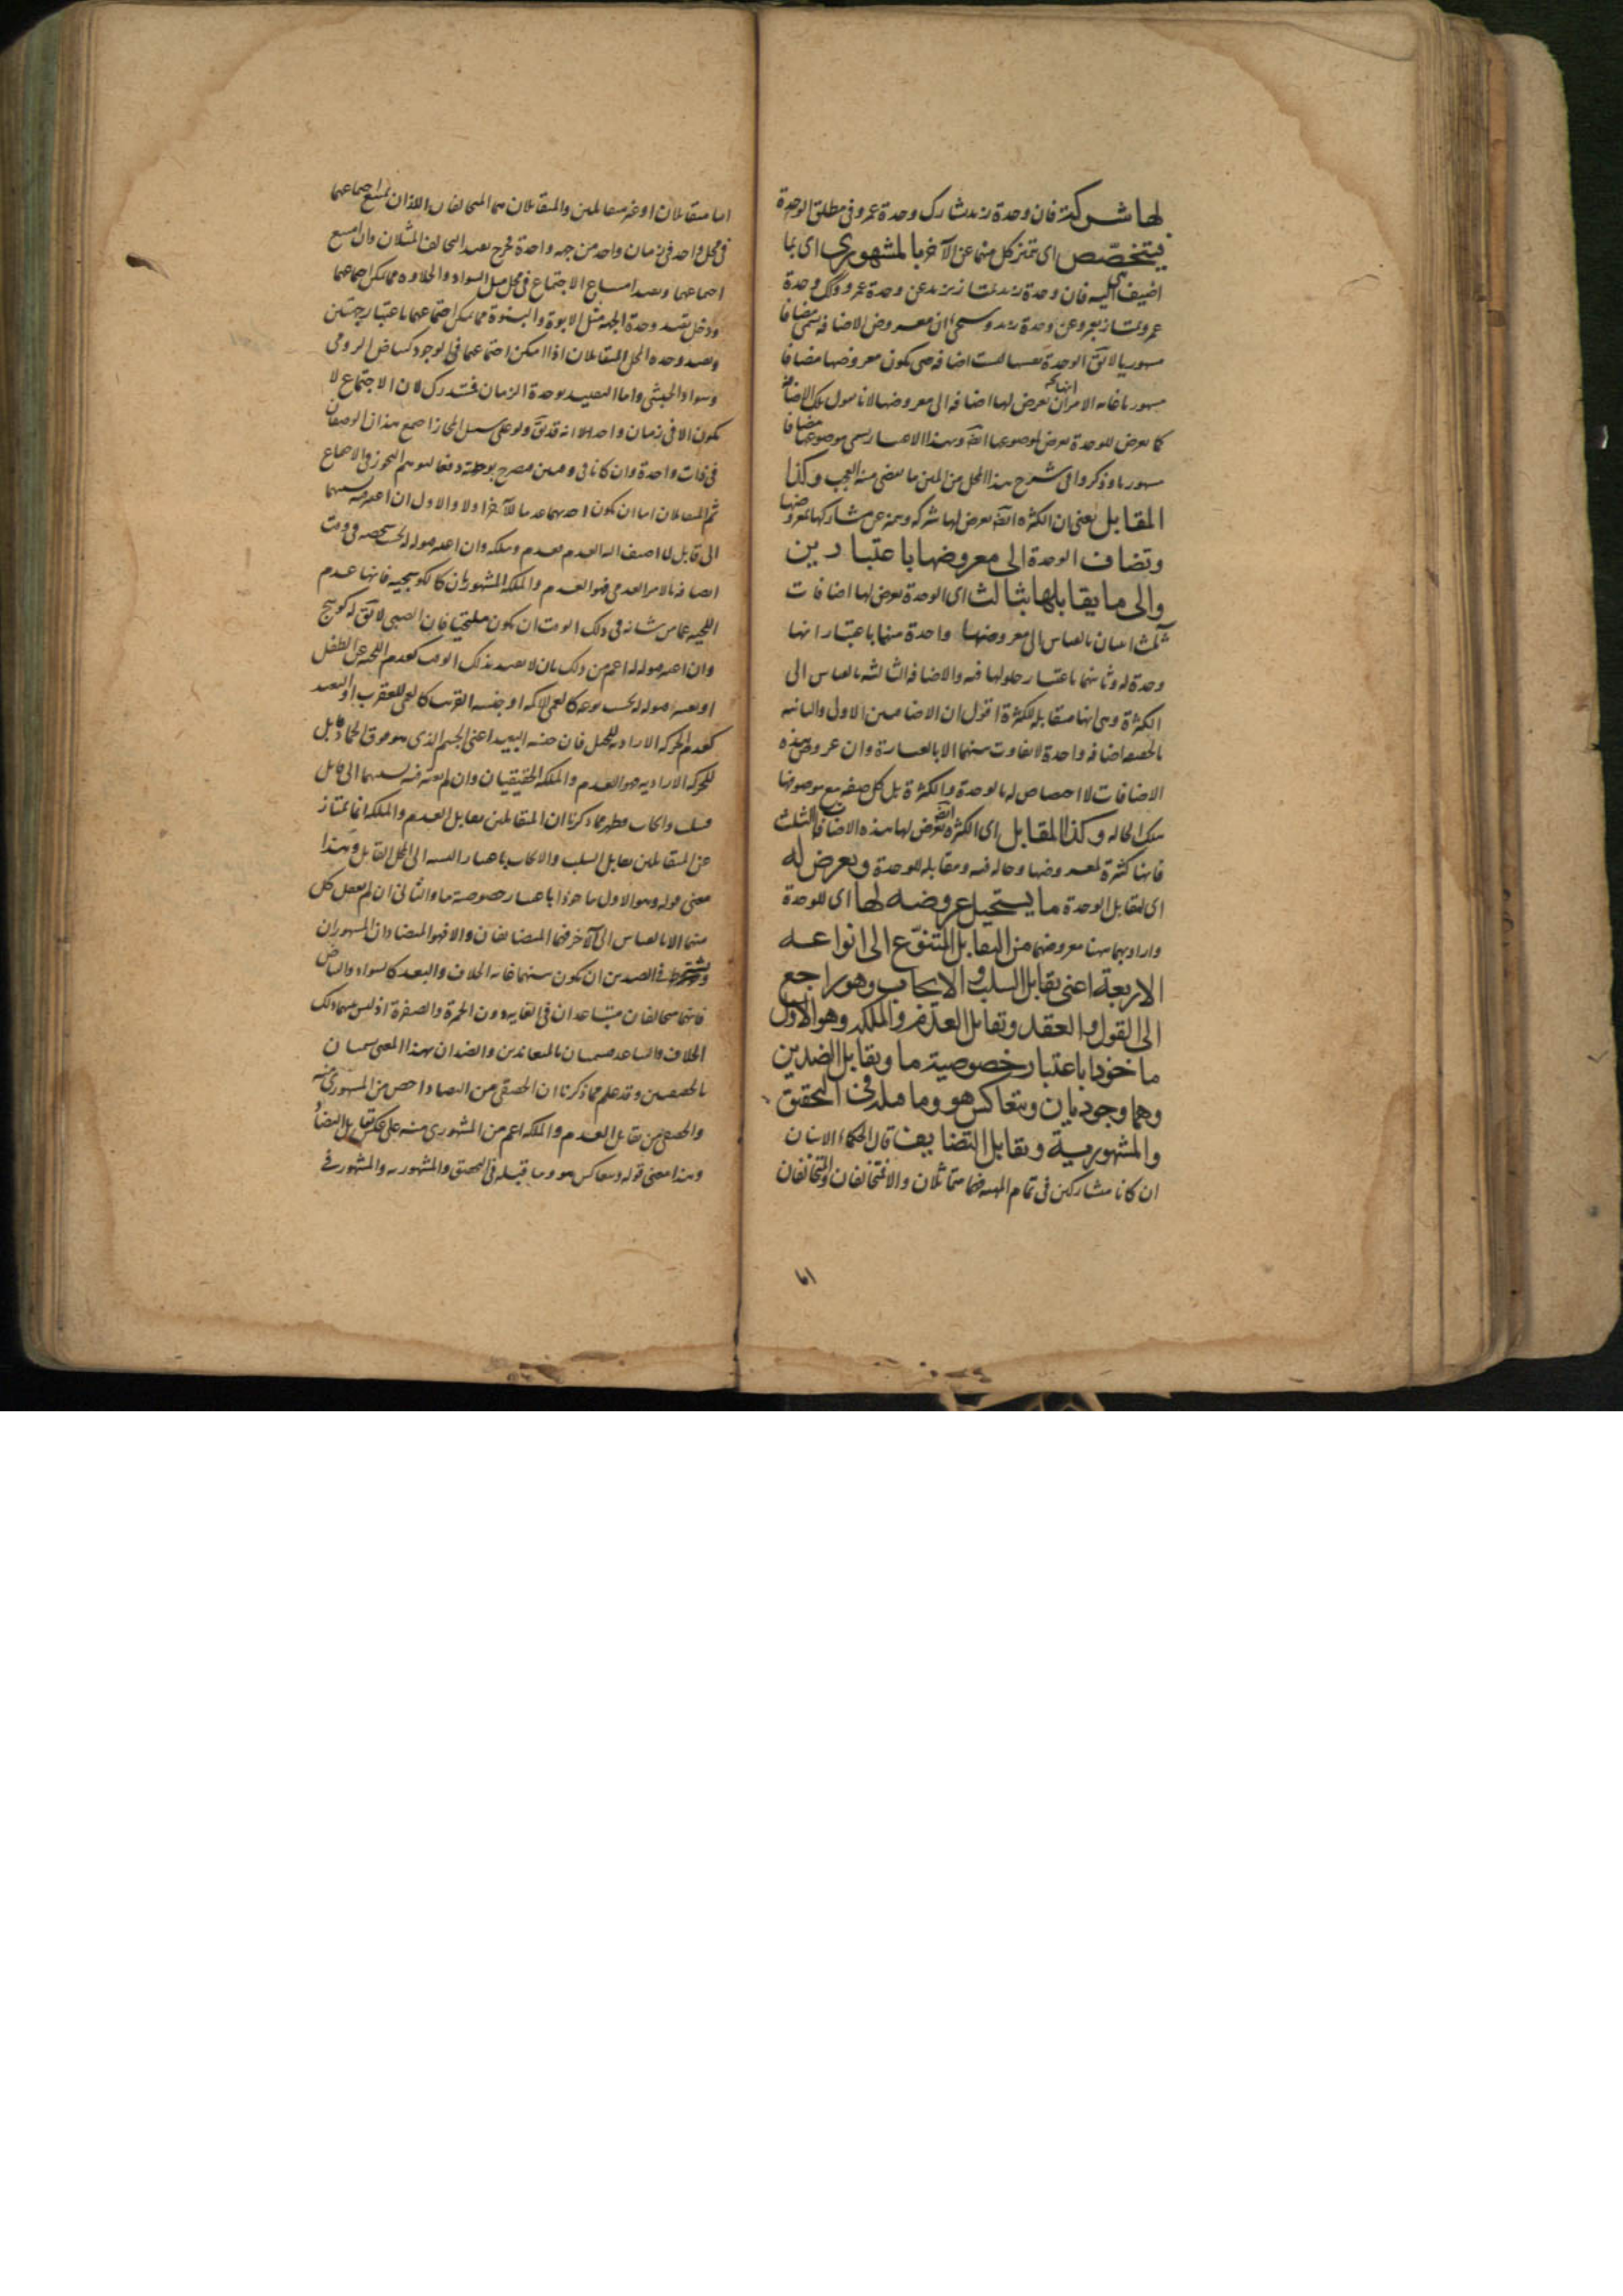 لها شركة فان وحدة زيد تشارك وحدة عمرو فى مطلق الوحدة
فيتخصّص اى تتميز كل منهما عن الآخر بالمشهورى اى بما
اضيف اليه فان وحدة زيد تمتاز بزيد عن وحدة عمرو وكك وحدة
عمرو تمتاز بعمرو عن وحدة زيد وسيجئ ان معروض الاضافة يسمى مضافا
مشهوريا لايق الوحدة نفسها ليست اضافة حتى يكون معروضها مضافا
مشهوريا غاية الامر ان يعرض لها اضافة الى معروضها لانا نقول تلك الاضافة
كما يعرض للوحدة يعرض لموضوعها ايضا وبهذا الاعتبار يسمى موضوعها مضافا
مشهوريا وذكروا فى شرح هذا المحل من المتن ما يفضى منه العجب وكذا
المقابل يعنى ان الكثرة ايضا يعرض لها شركة وتميز عن مشاركها بمعروضها
وتضاف الوحدة الى معروضها باعتبارين
والى ما يقابلها بثالث اى الوحدة يعرض لها اضافات
ثلث اثنتان بالقياس الى معروضها واحدة منهما باعتبار انها
وحدة له وثانيتهما باعتبار حلولها فيه والاضافة الثالثة بالقياس الى
الكثرة وهى انها مقابلة للكثرة اقول ان الاضافتين الاولى والثانية
بالحقيقة اضافة واحدة لا تفاوت بينهما الا بالعبارة وان عروض هذه
الاضافات لا اختصاص له بالوحدة والكثرة بل كل صفة مع موصوفها
بتلك الحالة وكذا المقابل اى الكثرة ايضا يعرض لها هذه الاضافات الثلث
فانها كثرة لمعروضها وحالة فيه ومقابلة للوحدة ويعرض له
اى لمقابل الوحدة ما يستحيل عروضه لها اى للوحدة
واراد بهما هنا معروضهما من التقابل المتنوّع الى انواعه
الاربعة اعنى تقابل السلب والايجاب وهو راجع
الى القول والعقد وتقابل العدم والملكة وهو الاول
ماخوذا باعتبار خصوصية ما وتقابل الضدين
وهما وجوديان ويتعاكس هو وما قبله فى التحقق
والمشهورية وتقابل التضايف قال الحكماء الاثنان
ان كانا متشاركين فى تمام المهية فهما متماثلان والا فمتخالفان والمتخالفان
٨١
اما متقابلان او غير متقابلين والمتقابلان هما المتخالفان اللذان يمتنع اجتماعهما
فى محل واحد فى زمان واحد من جهة واحدة فخرج بقيد التخالف المثلان وان امتنع
اجتماعهما وبقيد امتناع الاجتماع فى محل مثل السواد والحلاوة مما يمكن اجتماعهما
ودخل بقيد وحدة الجهة مثل الابوة والبنوة مما يمكن اجتماعهما باعتبار جهتين
وبقيد وحدة المحل المتقابلان اذا امكن اجتماعهما فى الوجود كبياض الرومى
وسواد الحبشى واما التقييد بوحدة الزمان فمستدرك لان الاجتماع لا
يكون الا فى زمان واحد الا انه قد يق ولو على سبيل المجاز اجتمع هذان الوصفان
فى ذات واحدة وان كانا فى وقتين فصرح بوحدته دفعا لتوهم التجوز فى الاجتماع
ثم المتقابلان اما ان يكون احدهما عدما للآخر اولا والاول ان اعتبر فيه نسبتهما
الى قابل لما اضيف اليه العدم فعدم وملكة وان اعتبر قبوله له بحسب شخصه فى وقت
اتصافه بالامر العدمى فهو العدم والملكة المشهوران كالكوسجية فانها عدم
اللحية عما من شانه فى ذلك الوقت ان يكون ملتحيا فان الصبى لا يق له كوسج
وان اعتبر قبوله له اعم من ذلك بان لا يقيد بذلك الوقت كعدم اللحية عن الطفل
او يعتبر قبوله له بحسب نوعه كالعمى للاكمه او جنسه القريب كالعمى للعقرب او البعيد
كعدم الحركة الارادية للجبل فان جنسه البعيد اعنى الجسم الذى هو فوق الجماد قابل
للحركة الارادية فهو العدم والملكة الحقيقيان وان لم يعتبر فيه نسبتهما الى قابل
فسلب وايجاب فظهر مما ذكرنا ان المتقابلين تقابل العدم والملكة انما تمتاز
عن المتقابلين تقابل السلب والايجاب باعتبار النسبة الى المحل القابل وهذا
معنى قوله وهو الاول ماخوذا باعتبار خصوصية ما والثانى ان لم يعقل كل
منهما الا بالقياس الى الآخر فهما المتضايفان والا فهو المتضادان المشهوران
ويشترط فى الضدين ان يكون بينهما غاية الخلاف والبعد كالسواد والبياض
فانهما متخالفان متباعدان فى الغاية دون الحمرة والصفرة اذ ليس بينهما ذلك
الخلاف والتباعد فيسميان بالمتعاندين والضدان بهذا المعنى يسميان
بالحقيقيين وقد علم مما ذكرنا ان الحقيقى من التضاد اخص من المشهورى منه
والحقيقى من تقابل العدم والملكة اعم من المشهورى منه على عكس تقابل التضاد
وهذا معنى قوله ويتعاكس هو وما قبله فى التحقق والمشهورية والمشهور فى